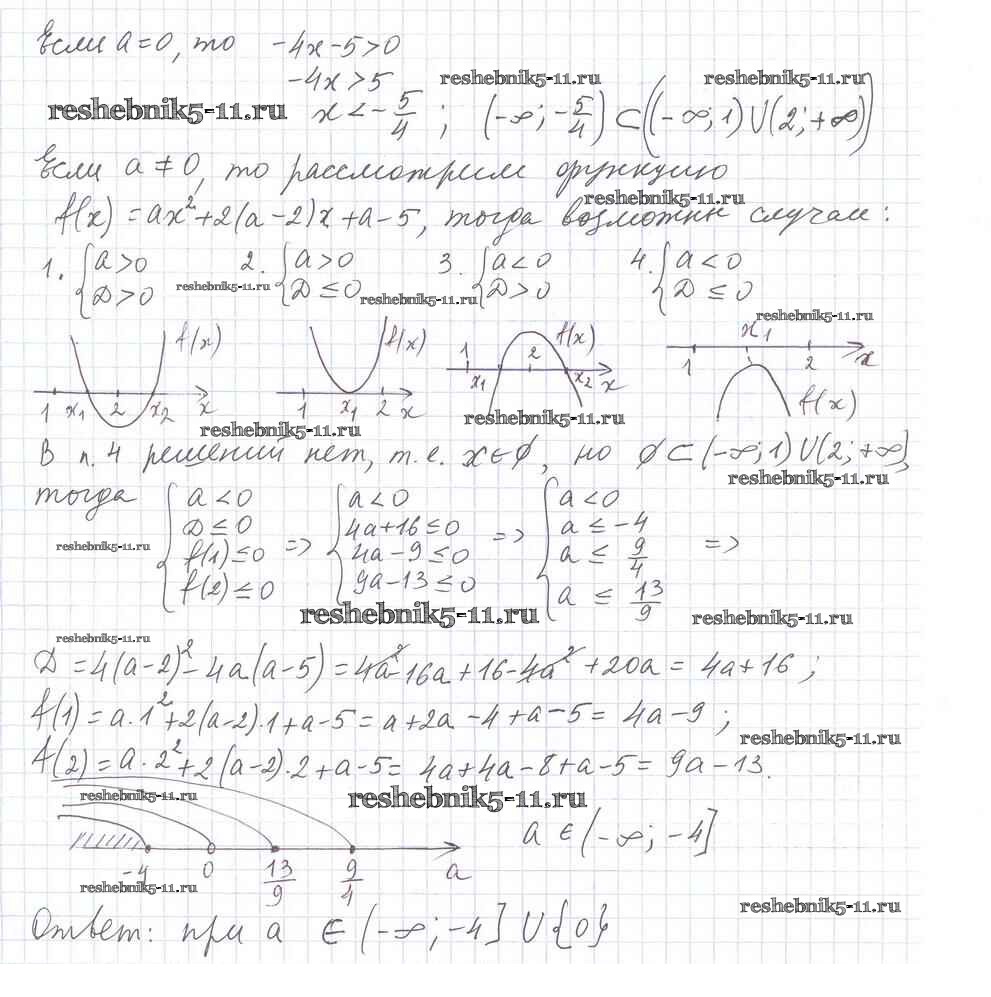 Если a=0, то -4x-5>0
-4x>5
reshebnik5-11.ru reshebnik5-11.ru
reshebnik5-11.ru x<-5/4; (-∞;-5/4)⊂((-∞;1)∪(2;+∞))
Если a≠0, то рассмотрим функцию
reshebnik5-11.ru
f(x)=ax²+2(a-2)x+a-5, тогда возможны случаи:
1. {a>0 2. {a>0 3. {a<0 4. {a<0
Д>0 reshebnik5-11.ru Д≤0 reshebnik5-11.ru Д>0 Д≤0
reshebnik5-11.ru
f(x) f(x) 1 f(x) 2 x₁
x₁ x₂ x 1 2 x
1 x₁ 2 x₂ x 1 x₁ 2 x f(x)
reshebnik5-11.ru reshebnik5-11.ru
В п. 4 решений нет, т.е. x∈∅, но ∅⊂(-∞;1)∪(2;+∞),
reshebnik5-11.ru
тогда {a<0 {a<0 {a<0
Д≤0 4a+16≤0 a≤-4
reshebnik5-11.ru f(1)≤0 => 4a-9≤0 => a≤9/4 =>
f(2)≤0 9a-13≤0 a≤13/9
reshebnik5-11.ru reshebnik5-11.ru
reshebnik5-11.ru
Д=4(a-2)²-4a(a-5)=4a²-16a+16-4a²+20a=4a+16;
f(1)=a·1²+2(a-2)·1+a-5=a+2a-4+a-5=4a-9;
reshebnik5-11.ru
f(2)=a·2²+2(a-2)·2+a-5=4a+4a-8+a-5=9a-13.
reshebnik5-11.ru reshebnik5-11.ru
a∈(-∞;-4]
-4 0 13/9 9/4 a
reshebnik5-11.ru
reshebnik5-11.ru
Ответ: при a ∈(-∞;-4]∪{0}